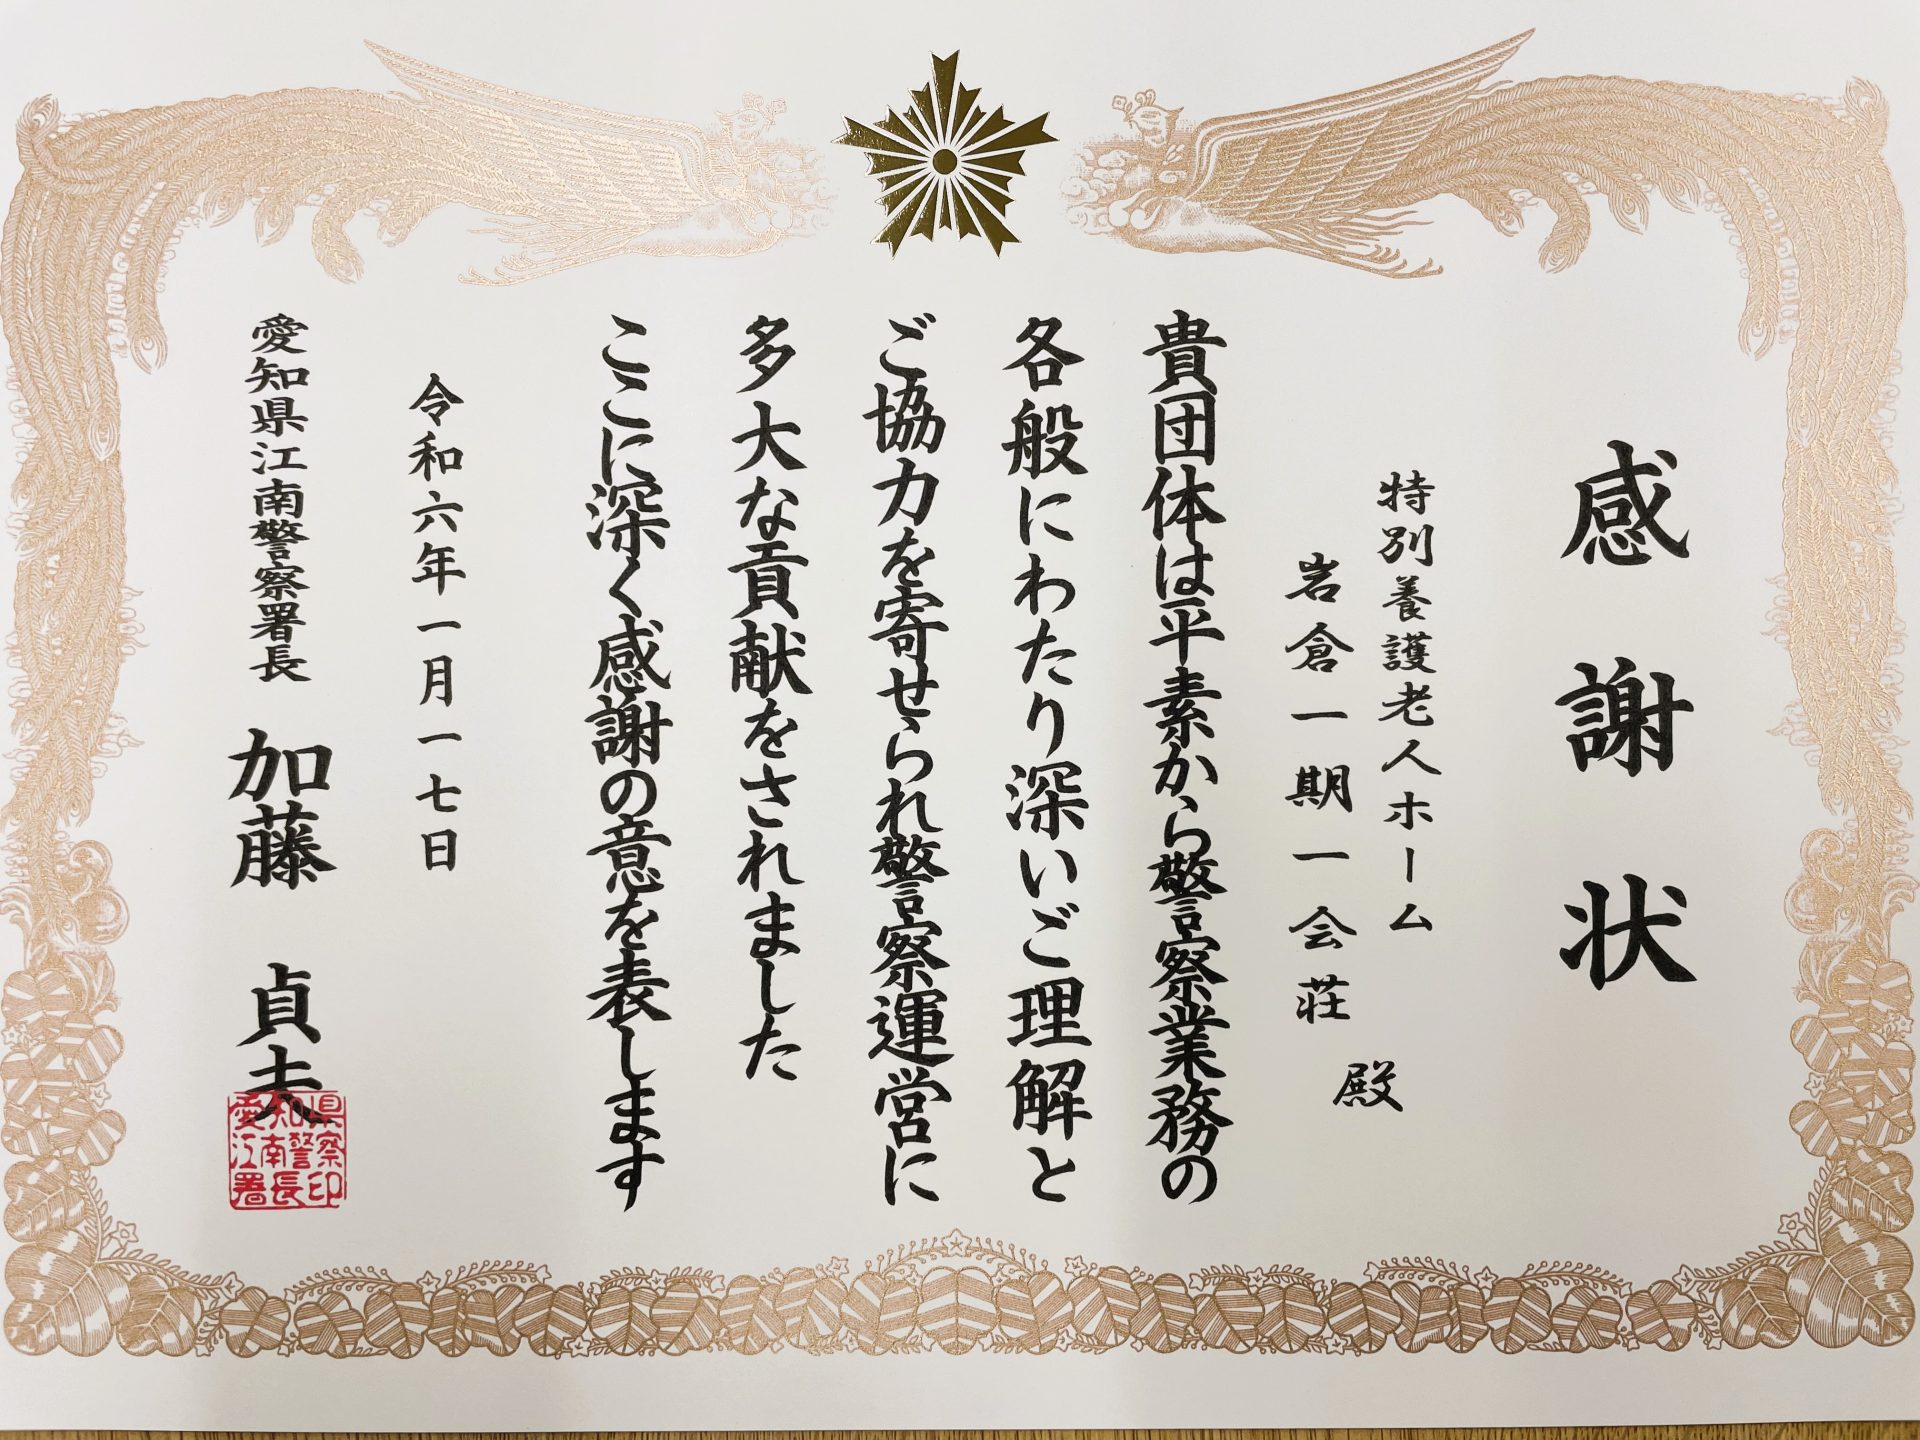 感謝状
特別養護老人ホーム
岩倉一期一会荘
殿
貴団体は平素から警察業務の
各般にわたり深いご理解と
ご協力を寄せられ警察運営に
多大な貢献をされました
ここに深く感謝の意を表します
令和六年一月一七日
愛知県江南警察署長 加藤 貞夫
県察印
知警長
愛江署